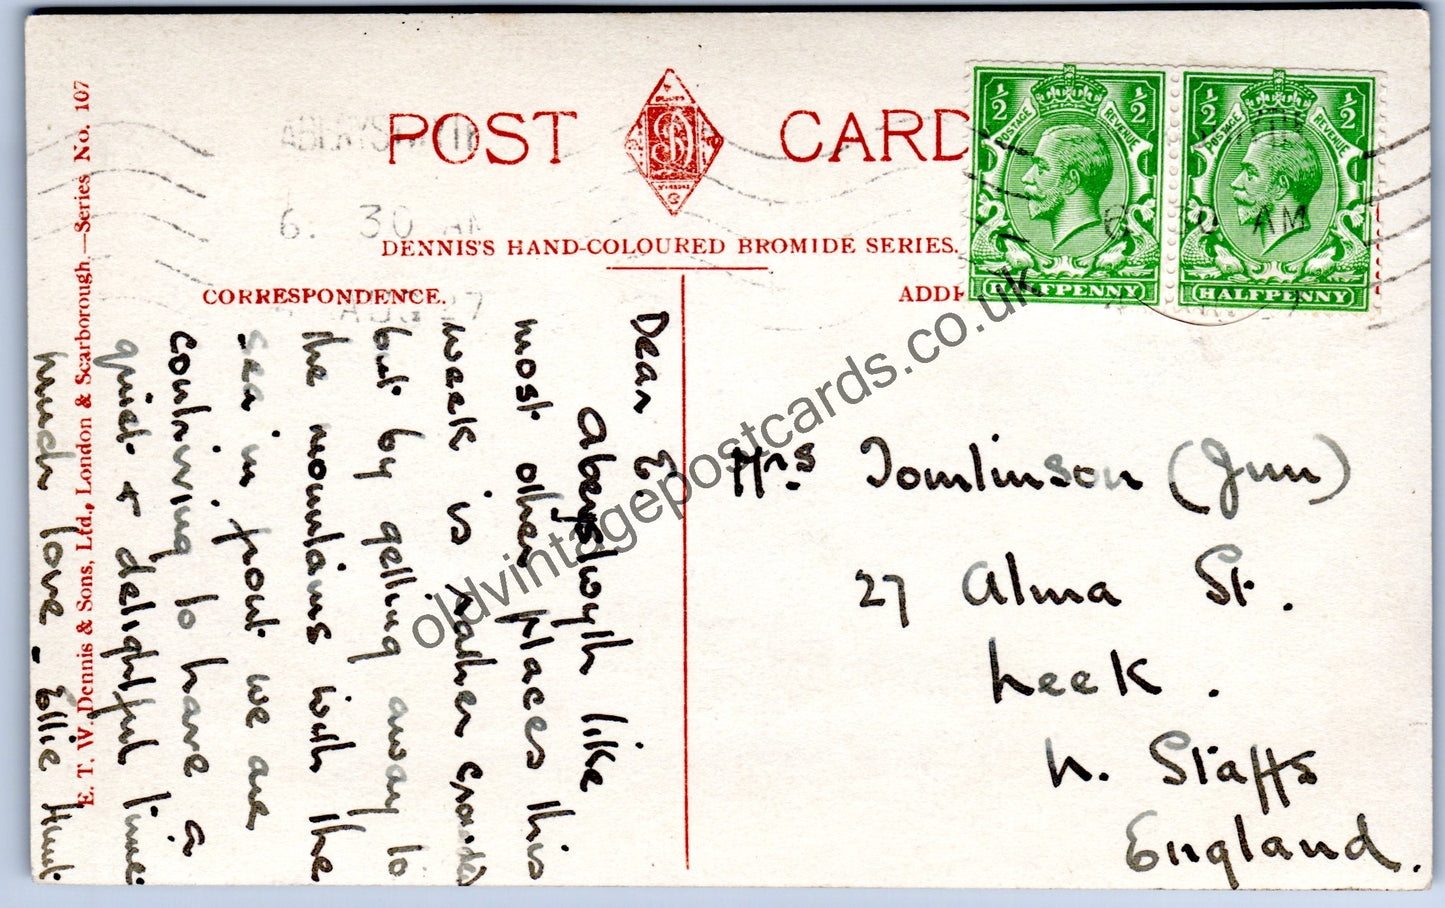 POST CARD
DENNIS'S HAND-COLOURED BROMIDE SERIES.
CORRESPONDENCE.
E. T. W. Dennis & Sons, Ltd., London & Scarborough.—Series No. 107
6. 30 AM
½ ½
POSTAGE REVENUE
HALFPENNY
½ ½
POSTAGE REVENUE
HALFPENNY
Dear E.
Aberystwyth like
most other places this
week is rather crowded
but by getting away to
the mountains with the
sea in front we are
contriving to have a
quiet + delightful time.
much love - Ellie Hunt
Mrs Tomlinson (Jun)
27 Alma St.
Leek.
N. Staffs
England.
oldvintagepostcards.co.uk